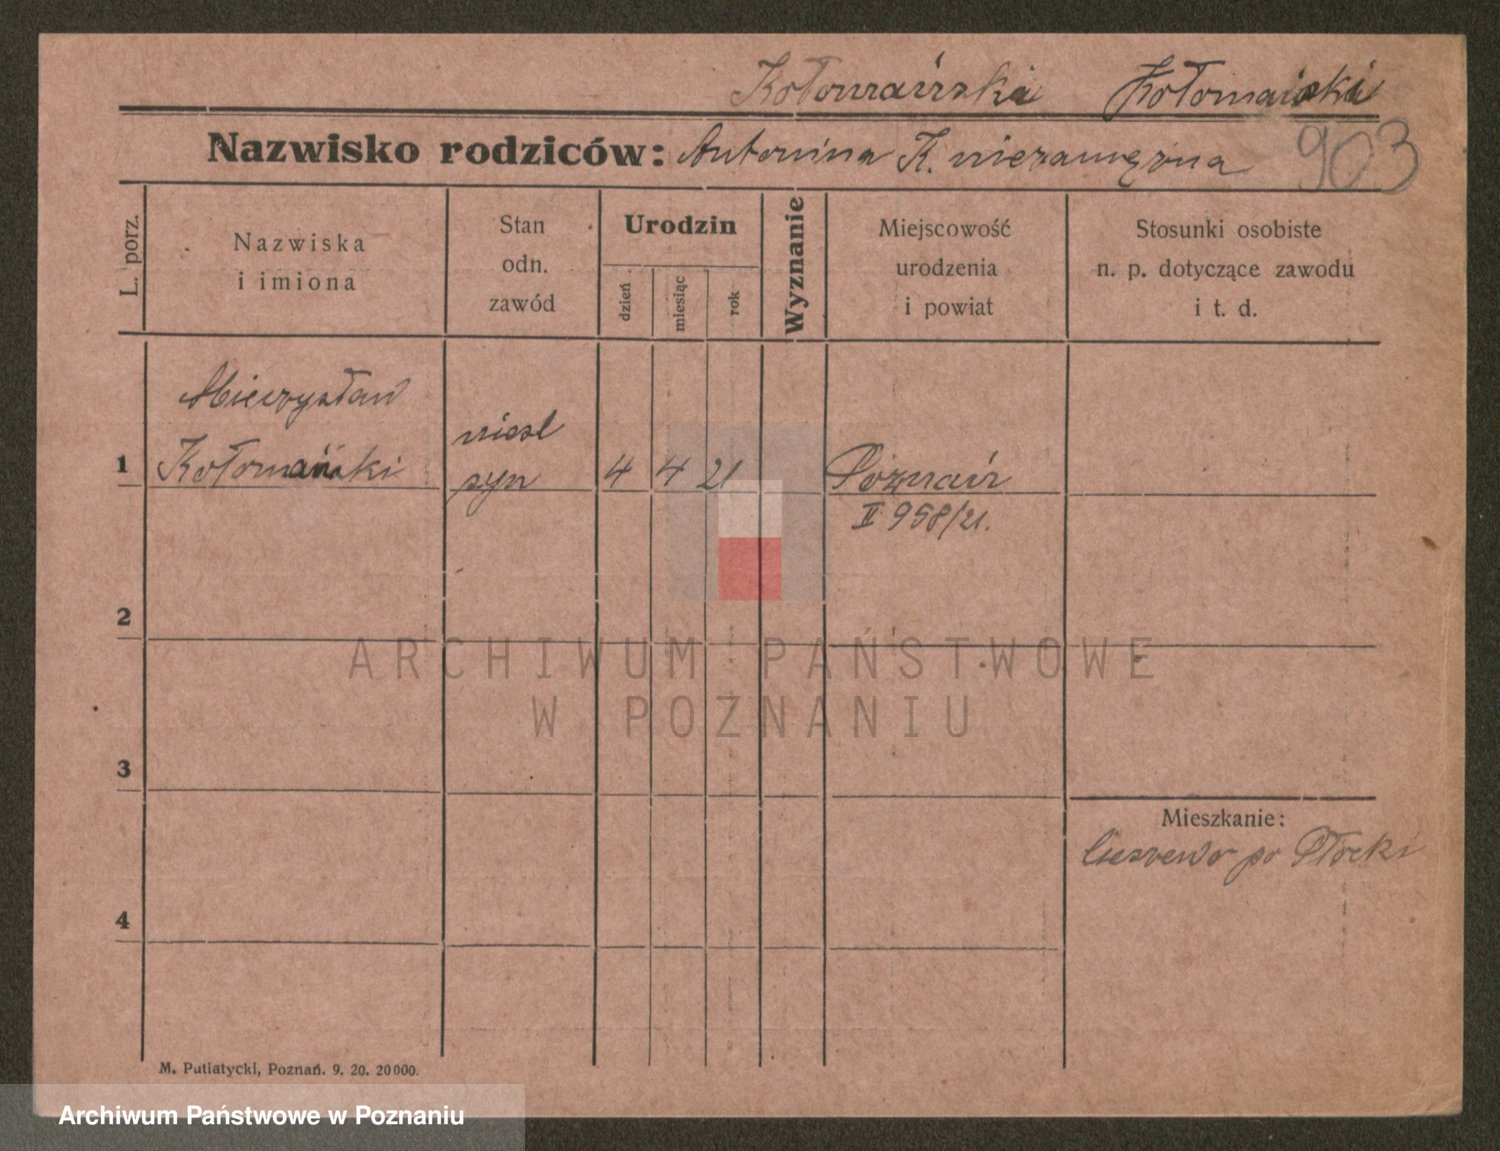 Kołomańska Kołomański
Nazwisko rodziców: Antonina K. niezamężna 903
L. porz.
Nazwiska
i imiona
Stan
odn.
zawód
Urodzin
dzień
miesiąc
rok
Wyznanie
Miejscowość
urodzenia
i powiat
Stosunki osobiste
n. p. dotyczące zawodu
i t. d.
Mieczysław
niesl
1 Kołomański syn 4 4 21 Poznań
II 958/21.
2
ARCHIWUM PAŃSTWOWE
W POZNANIU
3
Mieszkanie:
po Płocki
4
M. Putiatycki, Poznań. 9. 20. 20000.
Archiwum Państwowe w Poznaniu